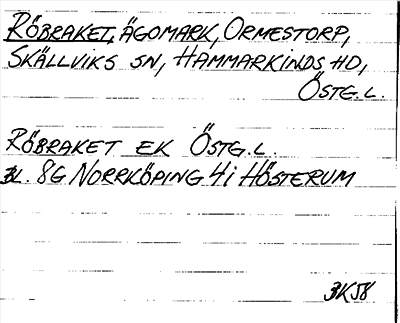 RÖBRAKET, ÄGOMARK, ORMESTORP,
SKÄLLVIKS SN, HAMMARKINDS HD,
ÖSTG.L.
RÖBRAKET EK ÖSTG.L.
BL. 8G NORRKÖPING 4i HÖSTERUM
3K58